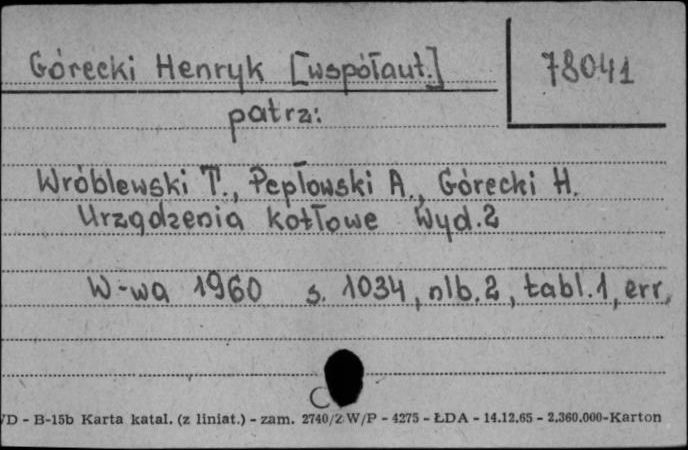 Górecki Henryk [współaut.]
78041
patrz:
Wróblewski T., Pepłowski A., Górecki H.
Urządzenia kotłowe Wyd.2
W-wa 1960 s. 1034, nlb. 2, tabl. 1, err,
C
VD - B-15b Karta katal. (z liniat.) - zam. 2740/Z W/P - 4275 - ŁDA - 14.12.65 - 2.360.000-Karton